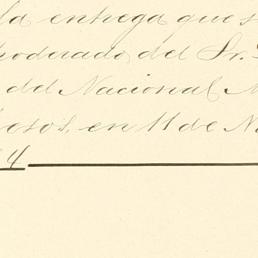 la entrega que s
poderado del Sr.
del Nacional M
osos, en 11 de N
4